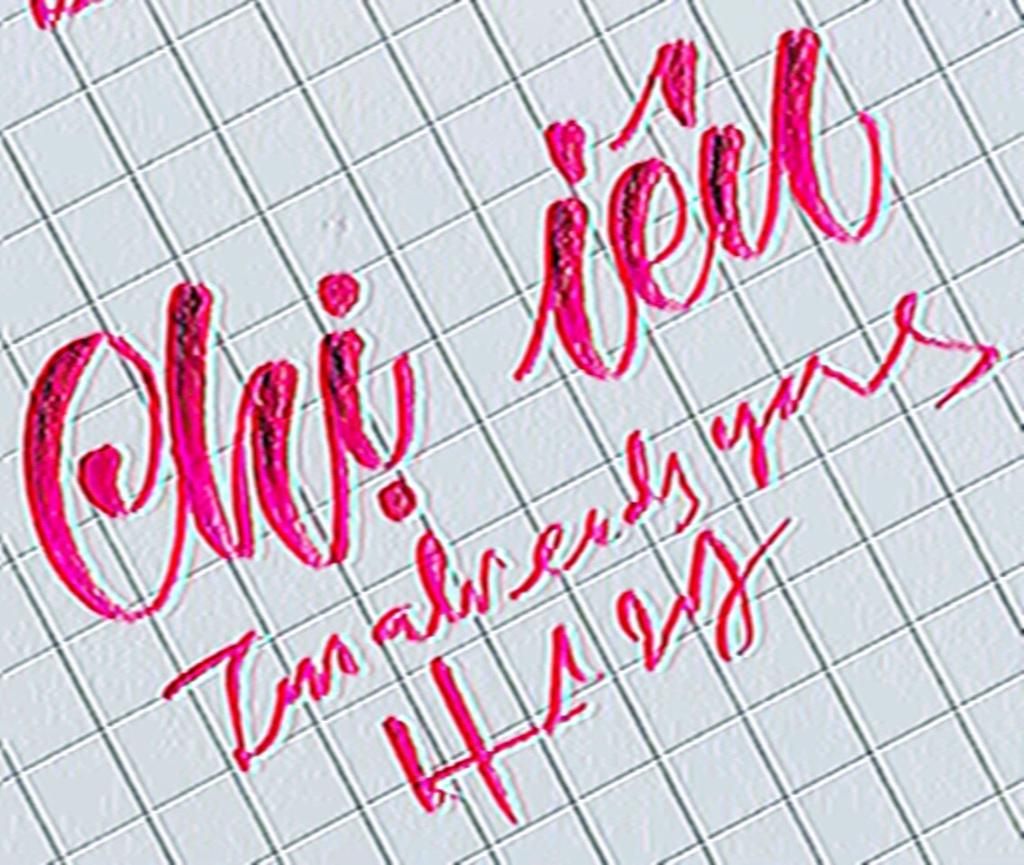 Chị iêu
Im already yours